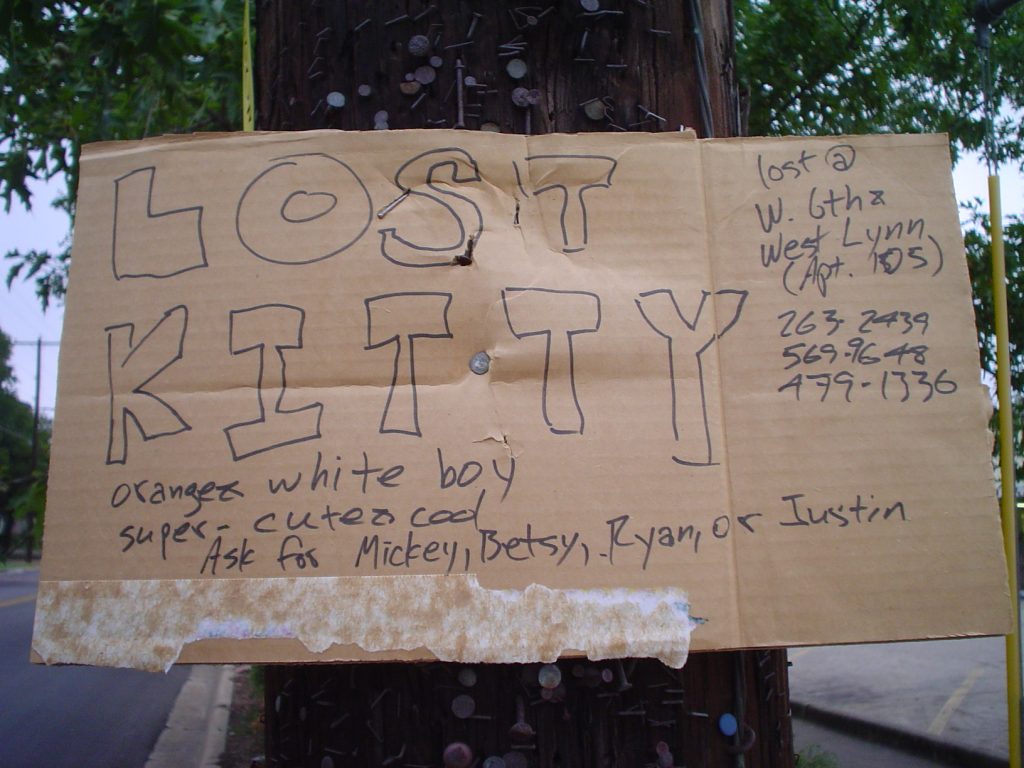 LOST
KITTY
orange & white boy
super-cute & cool
Ask for Mickey, Betsy, Ryan, or Justin
lost @
W. 6th &
West Lynn
(Apt. 105)
263-2439
569-9648
479-1336